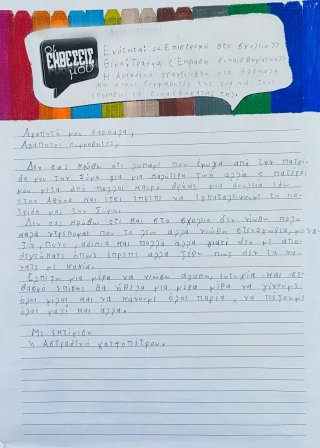 οι ΕΚΘΕΣΕΙΣ μου
Ενότητα: «Επιστροφή στο σχολείο»
Θέμα: Γράμμα (Έκφραση συναισθημάτων)
Η Αστραδενή γράφει στη
και στους συμμαθητές της για να τους
εκφράσει τα συναισθήματά της.
Αγαπητή μου δασκάλα,
Αγαπητοί συμμαθητές,
Δεν σας κρύβω ότι λυπάμαι που έφυγα από την πατρί-
δα μου την Σύμη για μια καλύτερη ζωή αλλά ο πατέρας
μου μετά από πολλοί καιρό βρήκε μια δουλειά εδώ
στην Αθήνα και έτσι έπρεπε να εγκαταλείψουμε τη πα-
τρίδα μας την Σύμη.
Δεν σας κρύβω ότι και στο σχολείο δεν νιώθω πολύ
καλά ντρέπομαι που το λέω αλλά νιώθω στεναχώρια, μονα-
ξιά, πόνο, αδικία και πολλά άλλα γιατί δεν με απο-
δεχτήκατε όπως έπρεπε αλλά ξέρω πως δεν το κά-
νατε με κακία.
Ελπίζω μια μέρα να νιώσω αγάπη, ευτυχία και σε-
βασμό επίσης θα ήθελα μια μέρα να γίνουμε
όλοι φίλοι και να κάνουμε όλοι παρέα, να παίζουμε
όλοι μαζί και άλλα.
Με εκτίμηση
η Αστραδενή Χατζηπέτρου.